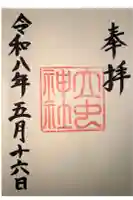 奉拝
大虫
神社
令和八年五月十六日